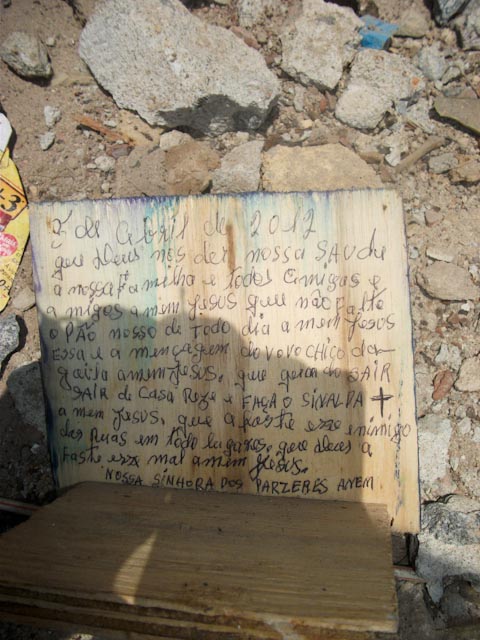 7 de Abril de 2012
que Deus nos der nossa SAUde
a nossa Familha e todos Amigas e
amigos amem Jesus que não Falte
o PÃO nosso de Todo dia amem Jesus
Essa e a mençagem do VOVO CHICO da
gaita amem Jesus, que quando SAIR
SAIR de Casa Reze e FAÇA O SINAL DA +
amem Jesus, que afaste esse enimigo
das Ruas em todo lugares, que Deus a
Faste esse mal amem Jesus.
NOSSA SINHORA DOS PARZERES AMEM
3